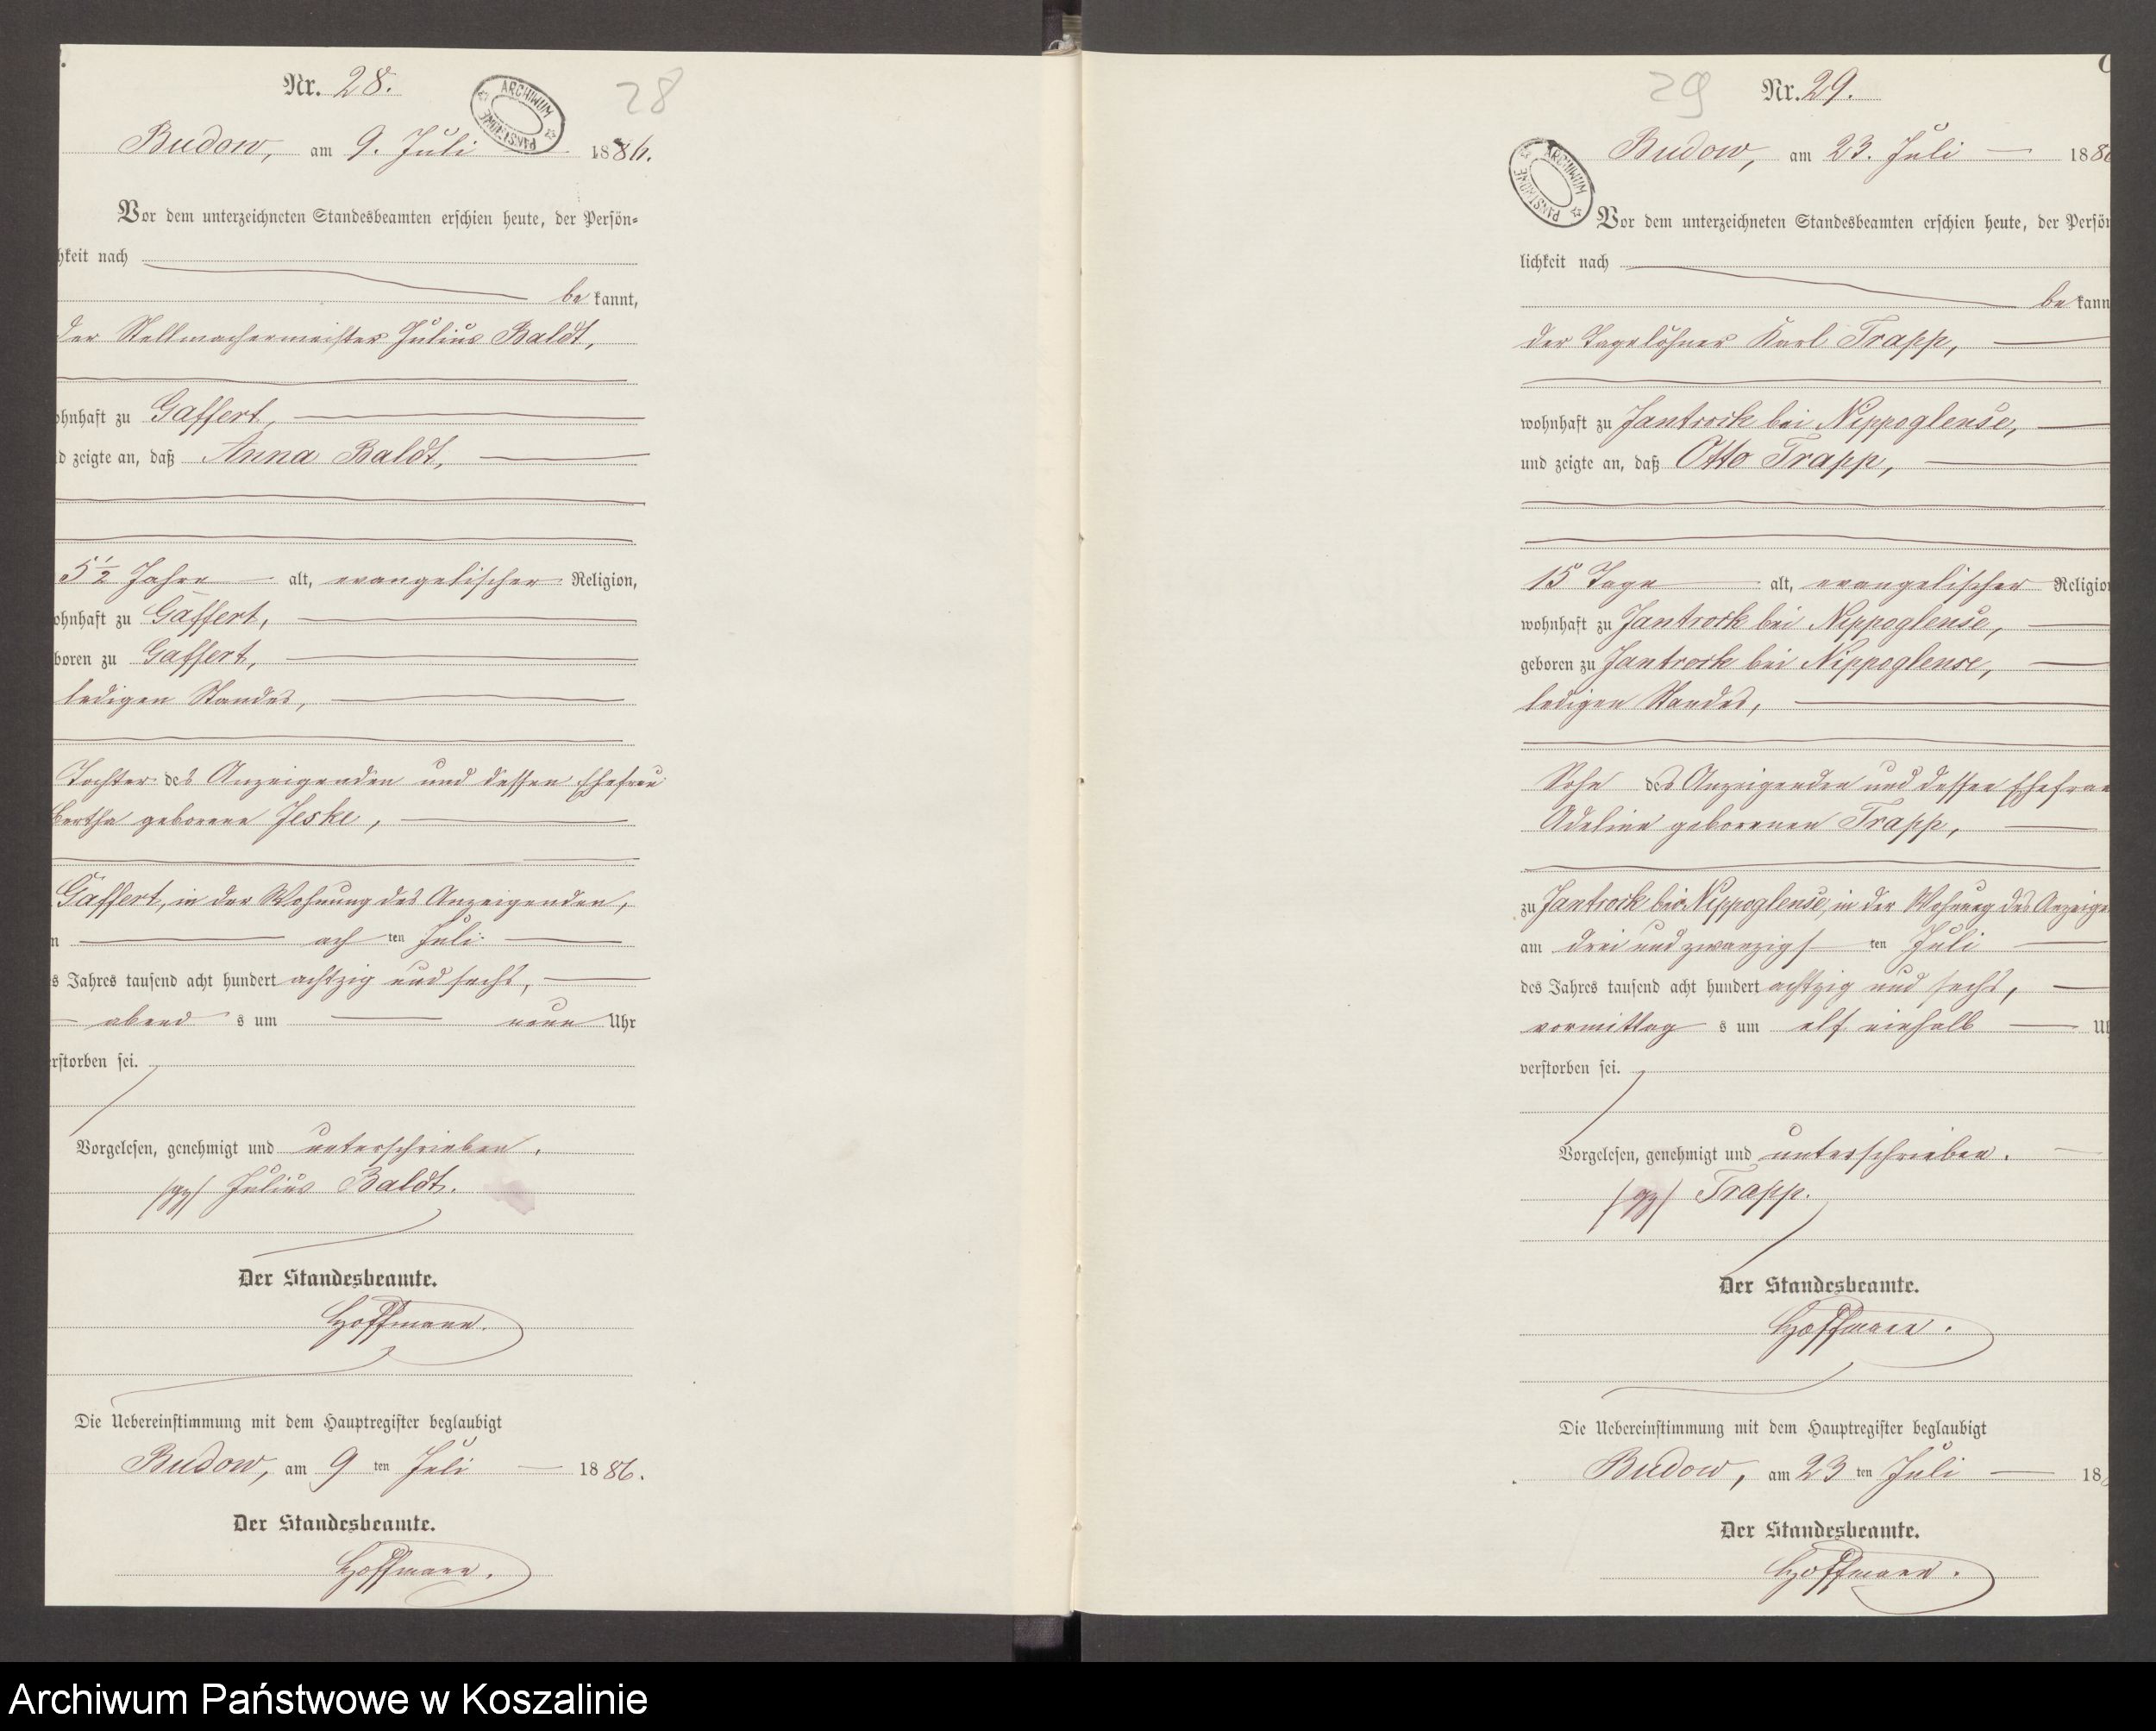 Nr. 28.
28
ARCHIWUM PAŃSTWOWE
Budow, am 9. Juli 1886.
Vor dem unterzeichneten Standesbeamten erschien heute, der Persön=
hkeit nach
be kannt,
der Stellmachermeister Julius Baldt,
ohnhaft zu Gaffert,
d zeigte an, daß Anna Baldt,
5 1/2 Jahre alt, evangelischer Religion,
ohnhaft zu Gaffert,
boren zu Gaffert,
ledigen Standes,
Tochter des Anzeigenden und dessen Ehefrau
Bertha geborene Jeske,
Gaffert, in der Wohnung des Anzeigenden,
n ach ten Juli
s Jahres tausend acht hundert achtzig und sechs,
abend s um neun Uhr
erstorben sei.
Vorgelesen, genehmigt und unterschrieben.
(gz) Julius Baldt.
Der Standesbeamte.
Hoffmann.
Die Uebereinstimmung mit dem Hauptregister beglaubigt
Budow, am 9 ten Juli 1886.
Der Standesbeamte.
Hoffmann.
29
Nr. 29.
ARCHIWUM PAŃSTWOWE
Budow, am 23. Juli 188
Vor dem unterzeichneten Standesbeamten erschien heute, der Persön
lichkeit nach
be kann
der Tagelöhner Karl Trapp,
wohnhaft zu Jantrock bei Nippoglense,
und zeigte an, daß Otto Trapp,
15 Tage alt, evangelischer Religion
wohnhaft zu Jantrock bei Nippoglense,
geboren zu Jantrock bei Nippoglense,
ledigen Standes,
Sohn des Anzeigenden und dessen Ehefrau
Adeline geborenen Trapp,
zu Jantrock bei Nippoglense, in der Wohnung des Anzeige
am drei und zwanzigs ten Juli
des Jahres tausend acht hundert achtzig und sechs,
vormittag s um elf einhalb U
verstorben sei.
Vorgelesen, genehmigt und unterschrieben.
(gz) Trapp.
Der Standesbeamte.
Hoffmann.
Die Uebereinstimmung mit dem Hauptregister beglaubigt
Budow, am 23 ten Juli 18
Der Standesbeamte.
Hoffmann.
Archiwum Państwowe w Koszalinie